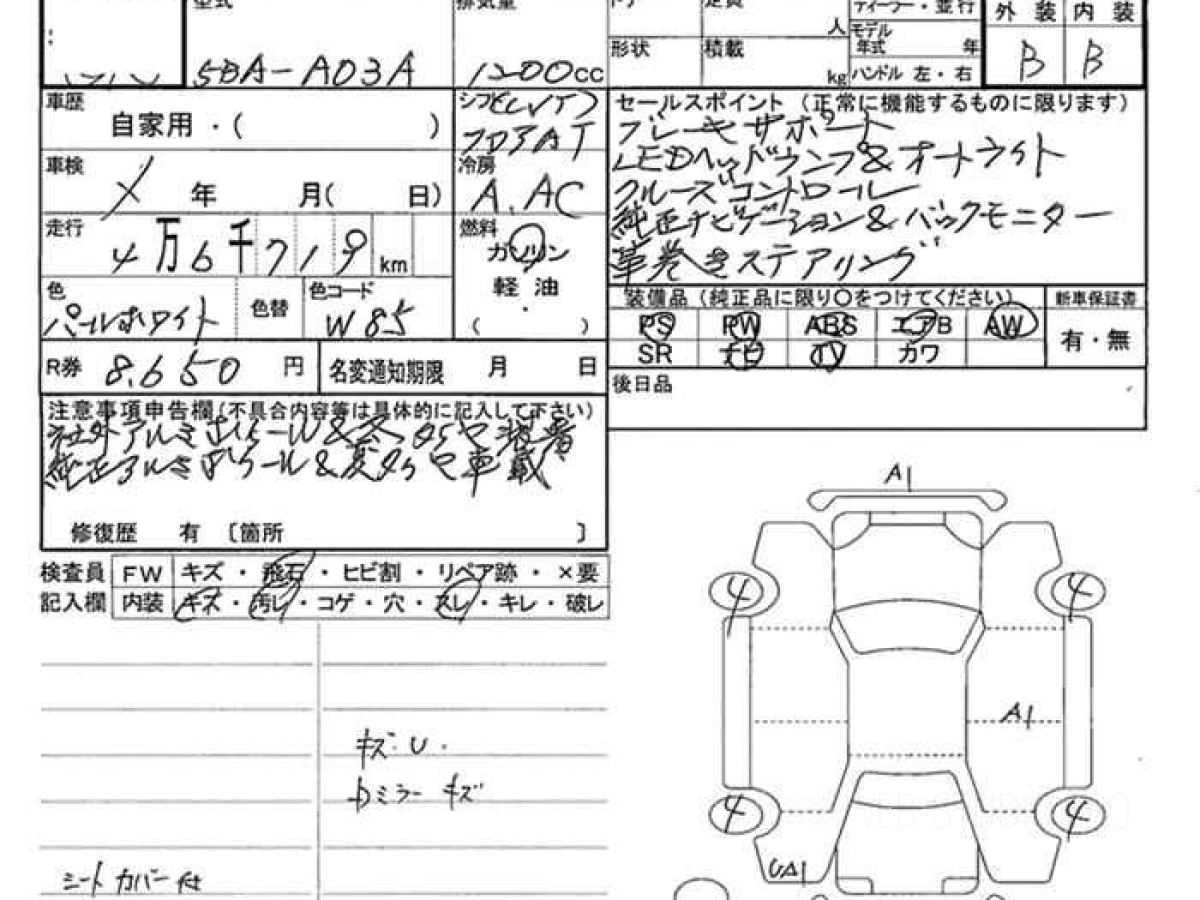 型式
排気量
ドア
定員
ディーラー・並行
外装 内装
SBA-A03A
1200cc
人
モデル年式 年
B B
形状
積載
kg
ハンドル 左・右
車歴
自家用・( )
シフト(CVT)
フロアAT
セールスポイント (正常に機能するものに限ります)
ブレーキサポート
LEDヘッドランプ&オートライト
クルーズコントロール
純正ナビゲーション&バックモニター
革巻きステアリング
車検
メ 年 月( 日)
冷房
A.AC
走行
4万6千719km
燃料
ガソリン
軽油
( ・ )
色
パールホワイト
色替
色コード
W85
装備品 (純正品に限り○をつけてください)
新車保証書
PS PW ABS エアB AW
有・無
SR ナビ TV カワ
R券 8.650円
名変通知期限 月 日
後日品
注意事項申告欄(不具合内容等は具体的に記入して下さい)
社外アルミホイールW&冬タイヤ装着
純正アルミホイール&夏タイヤ車載
修復歴 有 〔箇所 〕
検査員 FW キズ・飛石・ヒビ割・リペア跡・×要
記入欄 内装 キズ・汚レ・コゲ・穴・スレ・キレ・破レ
キズ.U.
Dミラー キズ
シートカバー付
A1
4 4
A1
4 4
UA1